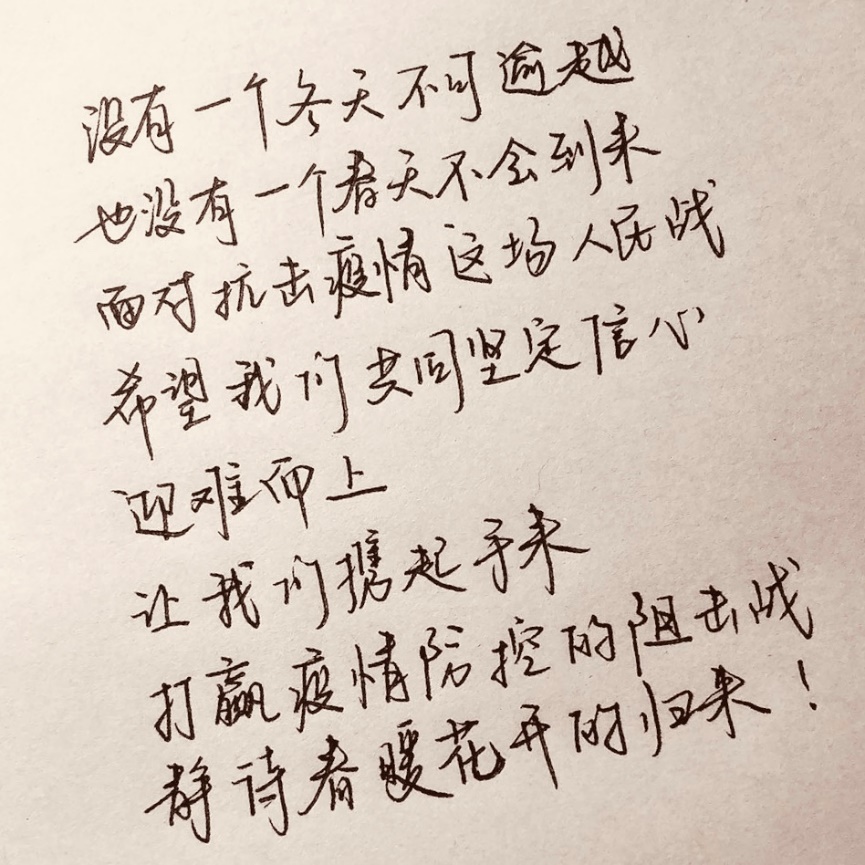 没有一个冬天不可逾越
也没有一个春天不会到来
面对抗击疫情这场人民战
希望我们共同坚定信心
迎难而上
让我们携起手来
打赢疫情防控的阻击战
静诗春暖花开的归来！